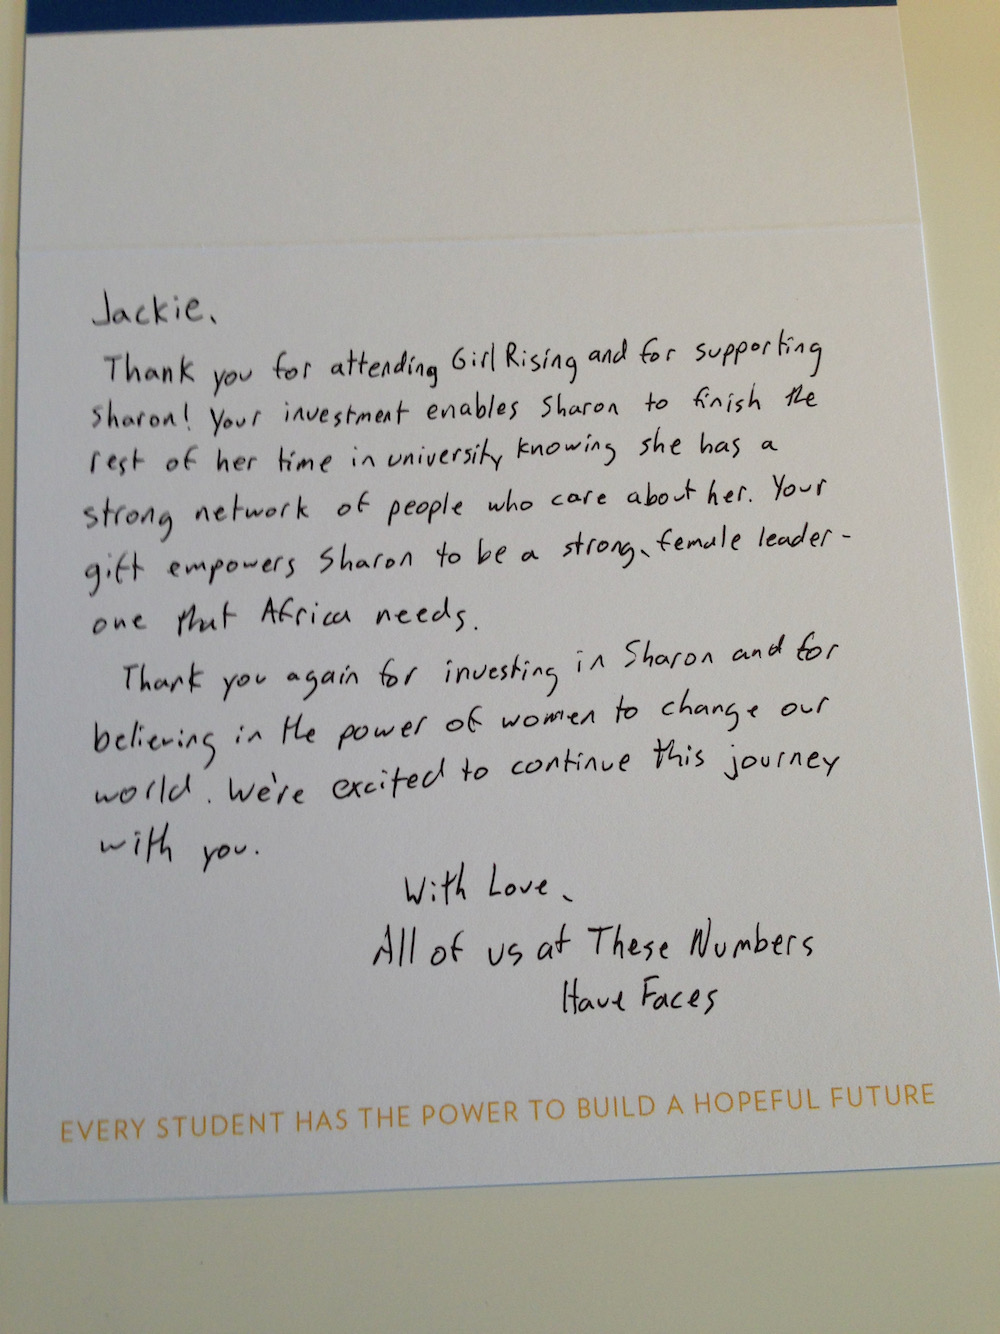 Jackie,
Thank you for attending Girl Rising and for supporting
Sharon! Your investment enables Sharon to finish the
rest of her time in university knowing she has a
strong network of people who care about her. Your
gift empowers Sharon to be a strong, female leader -
one that Africa needs.
Thank you again for investing in Sharon and for
believing in the power of women to change our
world. We're excited to continue this journey
with you.
With Love,
All of us at These Numbers
Have Faces
EVERY STUDENT HAS THE POWER TO BUILD A HOPEFUL FUTURE